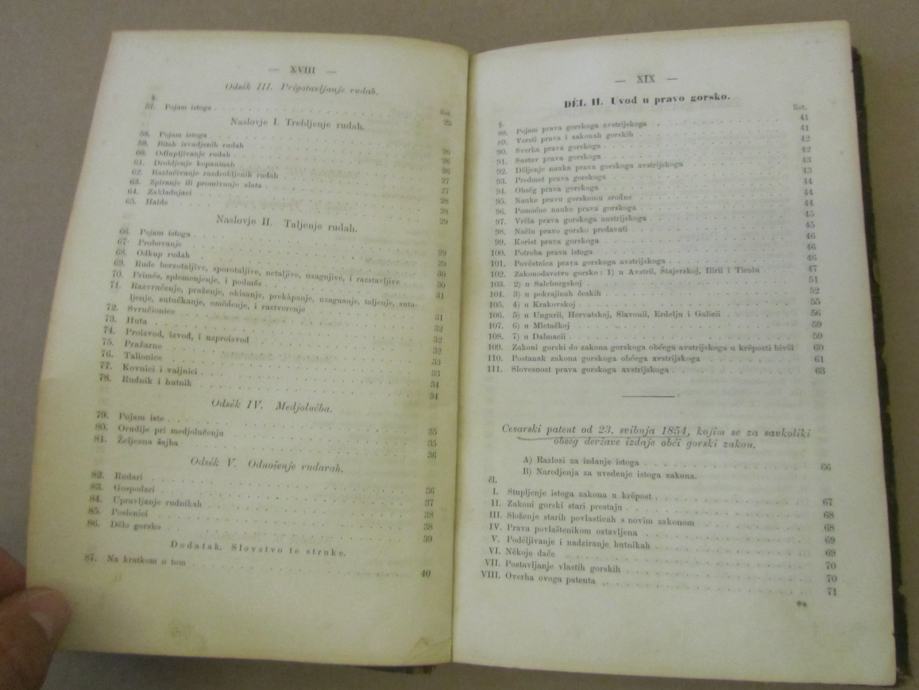 — XVIII —
Odsěk III. Prěpstavljanje rudah.
§.
57. Pojam istoga 25
Naslovje I. Trebljenje rudah.
58. Pojam istoga
59. Bitak izvadjenih rudah 26
60. Odlupljivanje rudah 26
61. Drobljenje kopaninah 26
62. Razlučivanje razdrobljenik rudah 27
63. Zpiranje ili promivanje zlata 27
64. Zakladajaci 28
65. Halde 28
29
Naslovje II. Taljenje rudah.
66. Pojam istoga
67. Probovanje 29
68. Odkup rudah 29
69. Rude berzotaljive, sporotaljive, netaljive, uzagnjive, i razstavljive 30
70. Priměs, splemenjenje, i podměs 30
71. Razvručenje, praženje, okisanje, prekápanje, uzagnanje, taljenje, raztaljenje, 31
72. Svručionice 31
73. Huta 32
74. Proizvod, izvod, i uzproizvod 32
75. Pražarne 32
76. Talionice 33
77. Kovnici i valjnici 33
78. Rudnik i hutnik 34
34
Odsěk IV. Medjolučba.
79. Pojam iste
80. Orudje pri medjolučenju 35
81. Željezna šajba 35
36
Odsěk V. Odnošenje rudarah.
82. Rudari
83. Gospodari 36
84. Upravljanje rudnikah 37
85. Poslenici 38
86. Dělo gorsko 38
39
Dodatak. Slovstvo te struke.
87. Na kratkom o tom 40
— XIX —
DĚL II. Uvod u pravo gorsko.
list.
§.
88. Pojam prava gorskoga avstrijskoga 41
89. Versti prava i zakonah gorskih 41
90. Sverha prava gorskoga 42
91. Sustav prava gorskoga 42
92. Diljenje nauka prava gorskoga avstrijskoga 43
93. Predmet prava gorskoga 43
94. Obsěg prava gorskoga 44
95. Nauke pravu gorskomu srodne 44
96. Pomoćne nauke prava gorskoga 44
97. Vrěla prava gorskoga austrijskoga 45
98. Način pravo gorsko predavati 45
99. Korist prava gorskoga 46
100. Potreba prava istoga 46
101. Pověstnica prava gorskoga avstrijskoga 46
102. Zakonodavstvo gorsko: 1) u Avstrii, Štajerskoj, Ilirii i Tirolu 47
103. 2) u Salcburgskoj 51
104. 3) u pokrajinah českih 52
105. 4) u Krakovskoj 55
106. 5) u Ungarii, Horvatskoj, Slavonii, Erdelju i Galicii 56
107. 6) u Mletačkoj 59
108. 7) u Dalmacii 59
109. Zakoni gorski do zakona gorskoga občega avstrijskoga u krěposti bivši 60
110. Postanak zakona gorskoga občega avstrijskoga 61
111. Slovesnost prava gorskoga avstrijskoga 63
Cesarski patent od 23. svibnja 1854, kojim se za savkoliki
obseg deržave izdaje obći gorski zakon.
A) Razlozi za izdanje istoga 66
B) Narodjenja za uvedenje istoga zakona.
čl.
I. Stupljenje istoga zakona u krěpost 67
II. Zakoni gorski stari prestaju 68
III. Složenje starih povlasticah s novim zakonom 68
IV. Prava povlaštenikom ostavljena 69
V. Poděljivanje i nadziranje hutnikah 69
VI. Někoje daće 70
VII. Postavljanje vlastih gorskih 70
VIII. Overha ovoga patenta 71
**